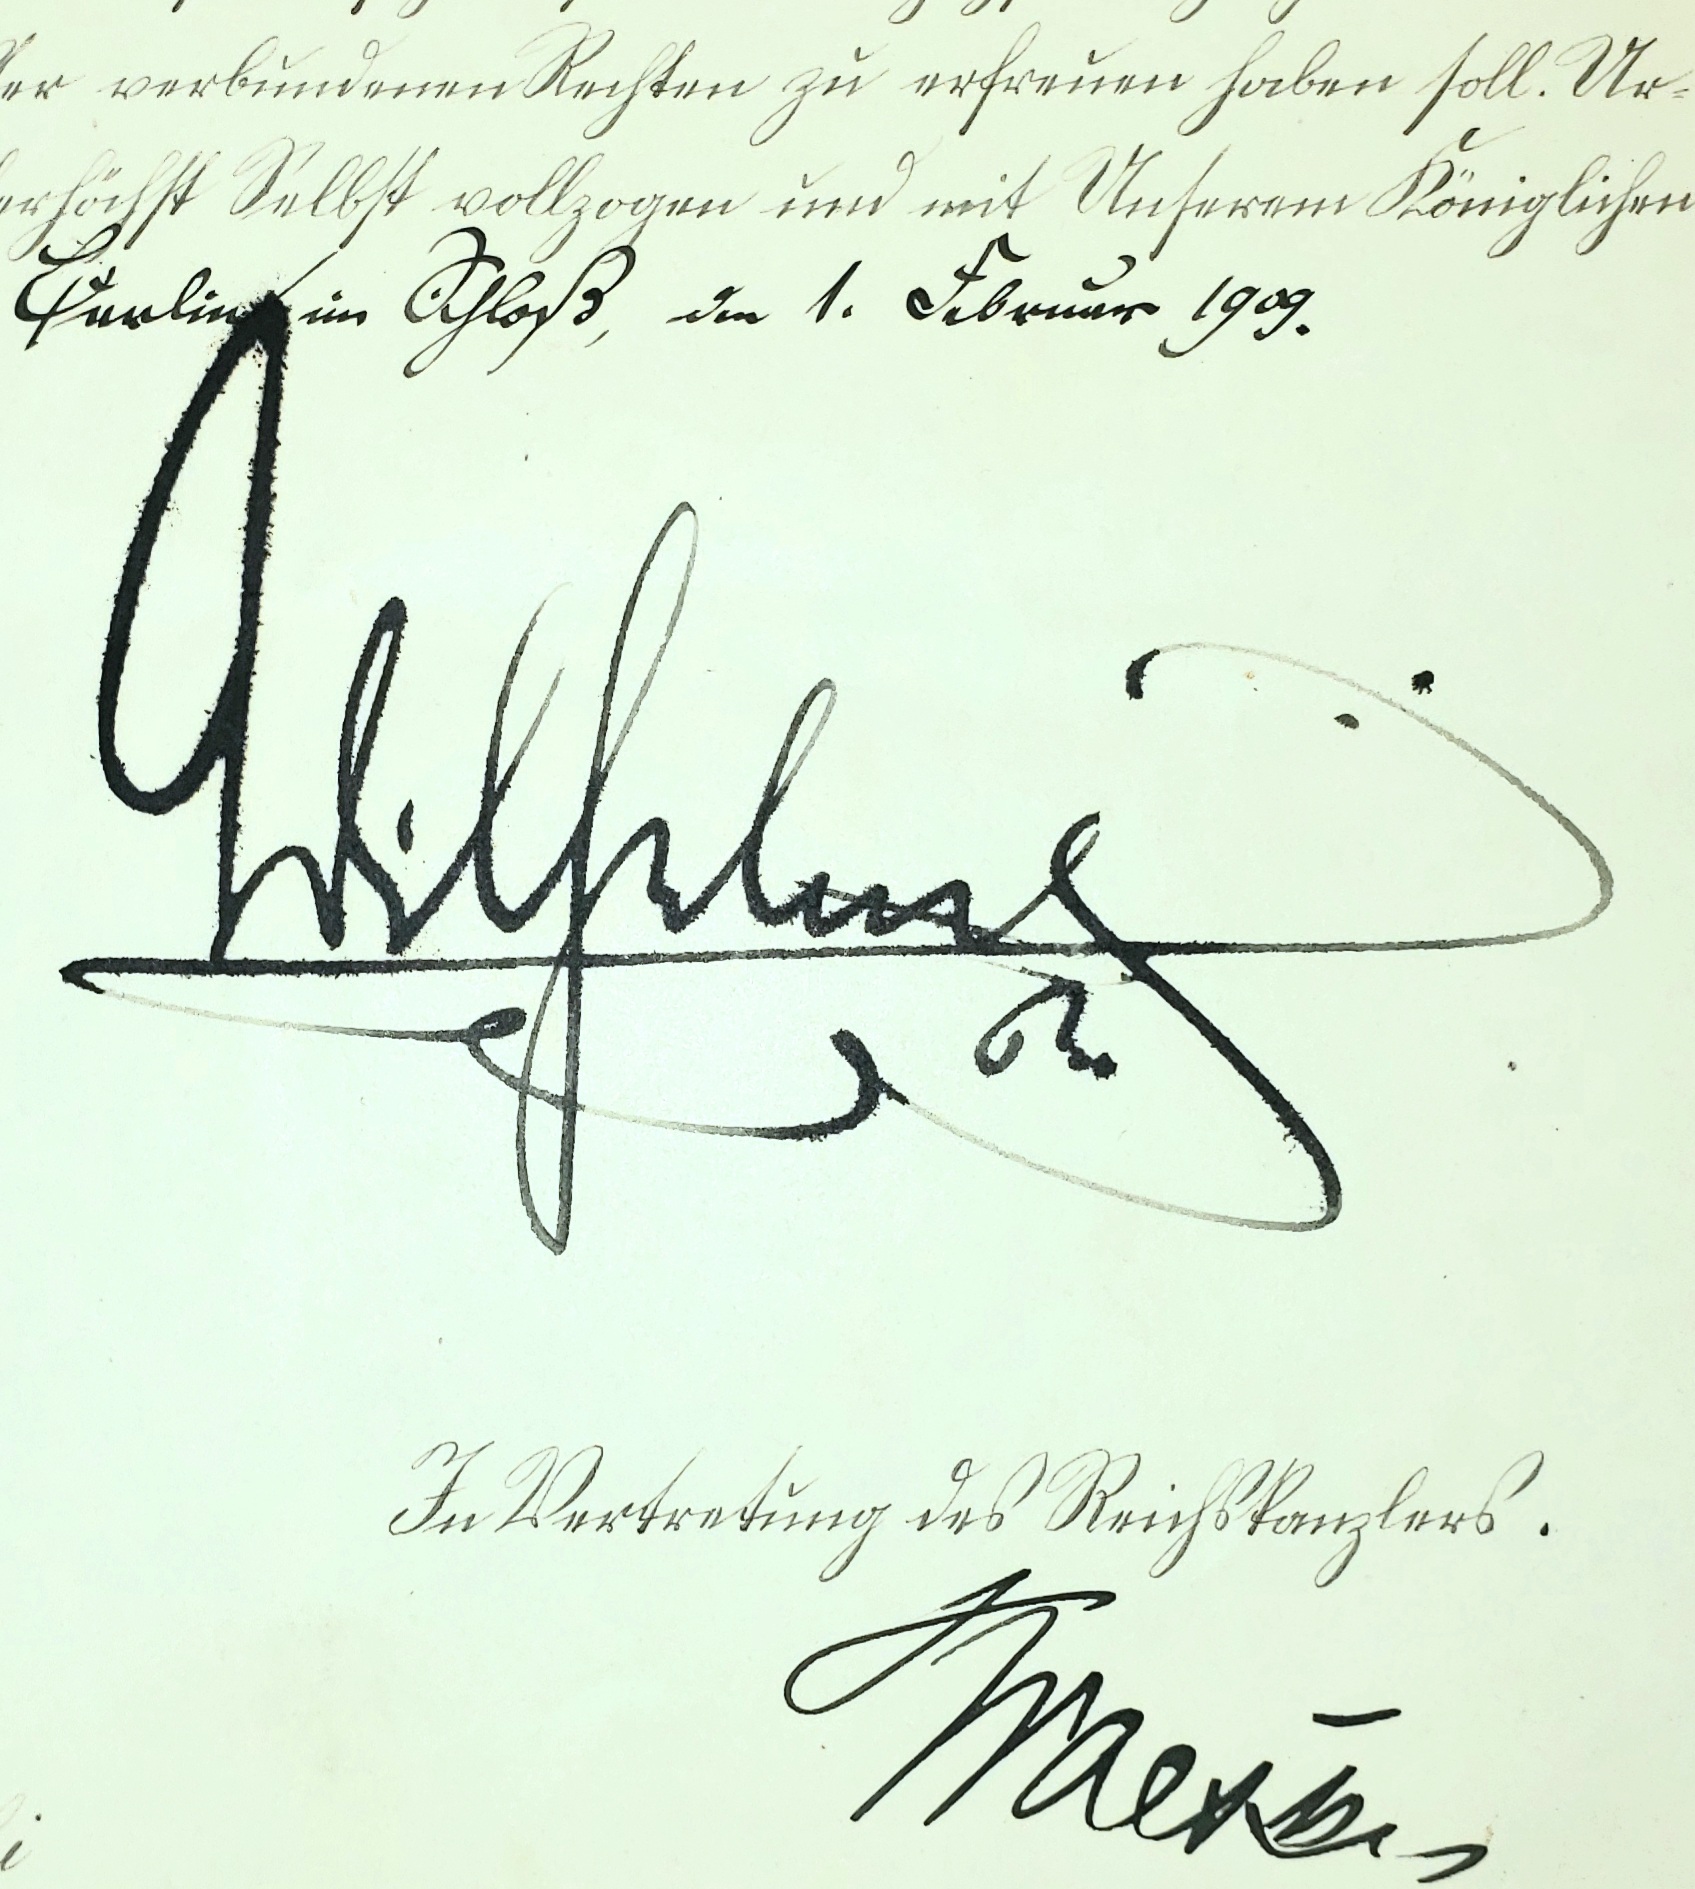 er verbundenen Rechten zu erfreuen haben soll. Ur-
erhöchst Selbst vollzogen und mit Unserem Königlichen
Berlin im Schloß, den 1. Februar 1909.
Wilhelm
In Vertretung des Reichskanzlers.